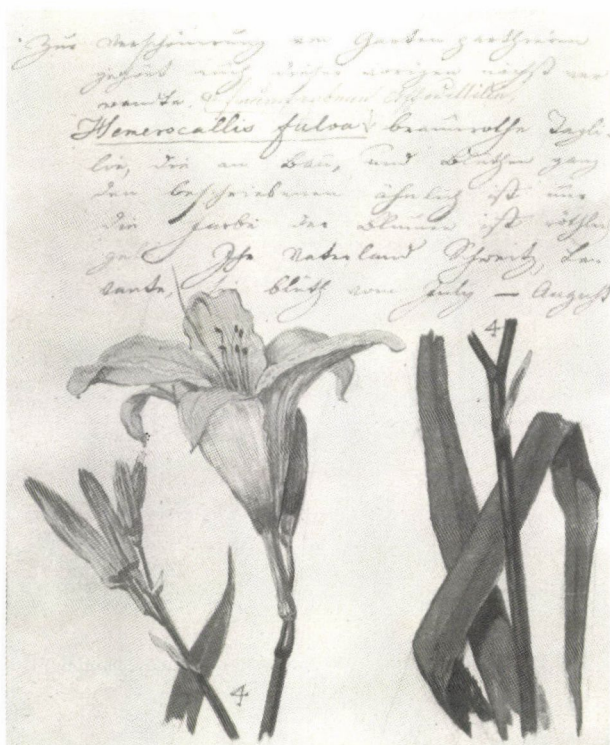 Zur Verschönerung von Garten parthieen
gehört auch dieser vorigen nächst ver
wandte.
Hemerocallis fulva, braunrothe Tagli-
lie, die am Bau, und Blüthen ganz
den beschriebenen ähnlich ist nur
die Farbe der Blumen ist röthlich
gelb. Ihr Vaterland Schweitz, Le-
vante, sie blüth vom July — August
4
4